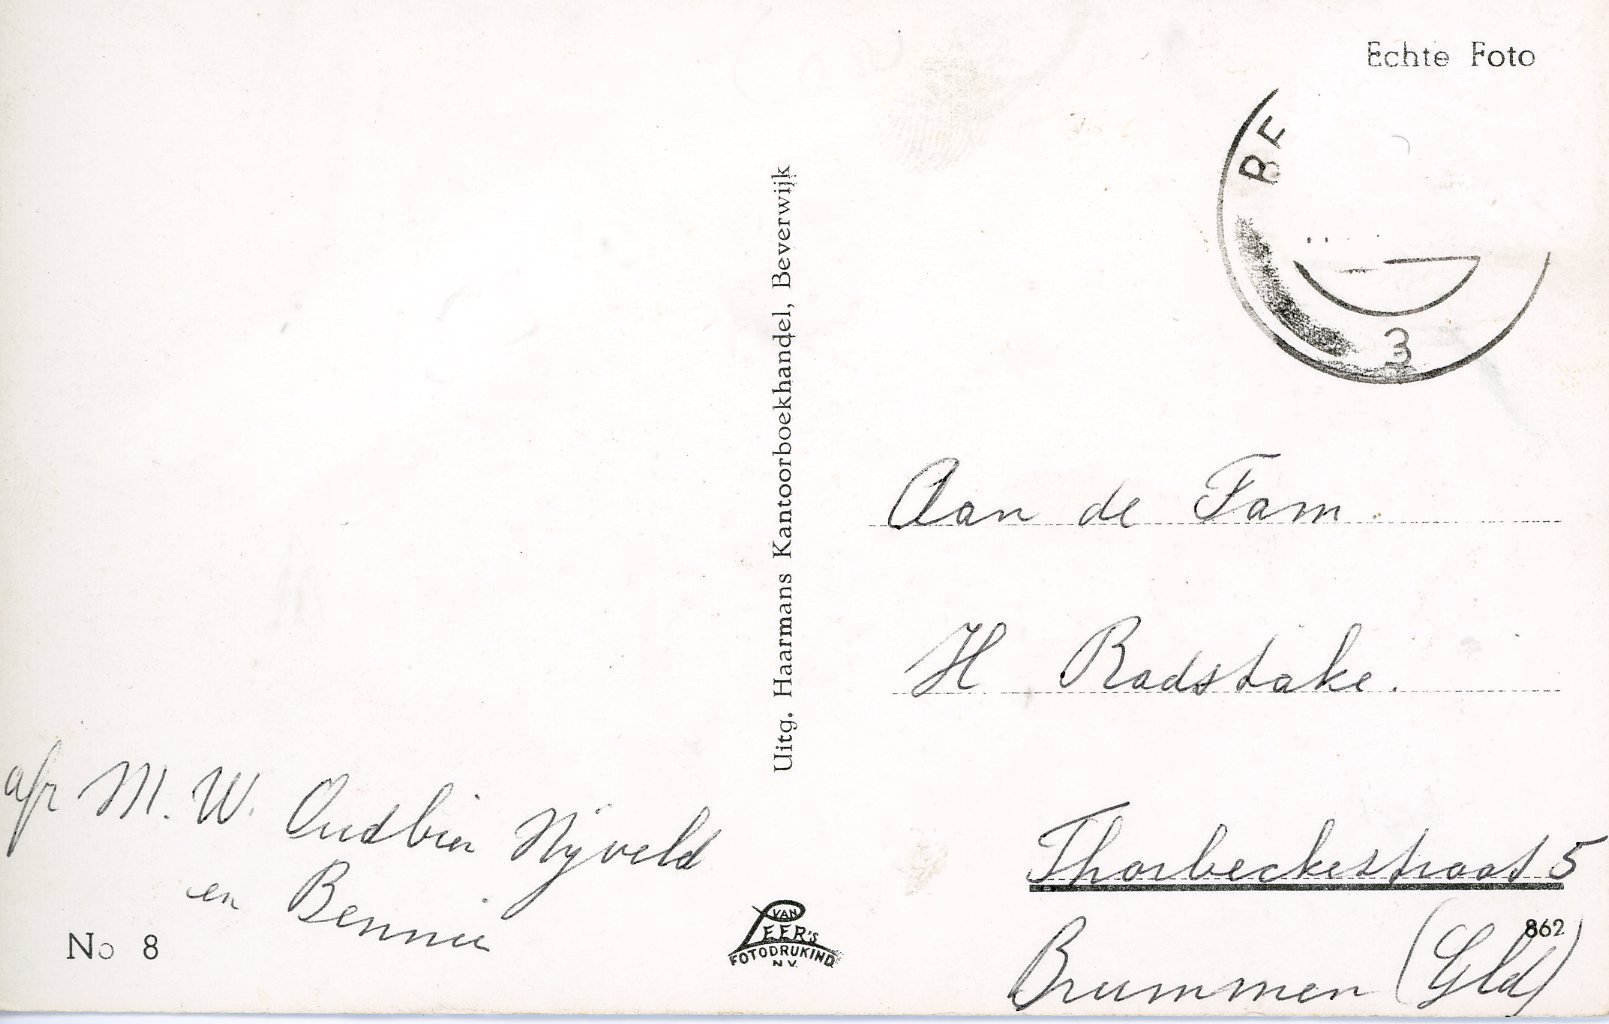 Echte Foto
BE
3
Uitg. Haarmans Kantoorboekhandel, Beverwijk
Aan de Fam
H Radstake.
Thorbeckestraat 5
Brummen (Gld)
862
afz M. W. Oudbier Nijveld
en Bennie
No 8
VAN
LEER'S
FOTODRUKIND.
N.V.